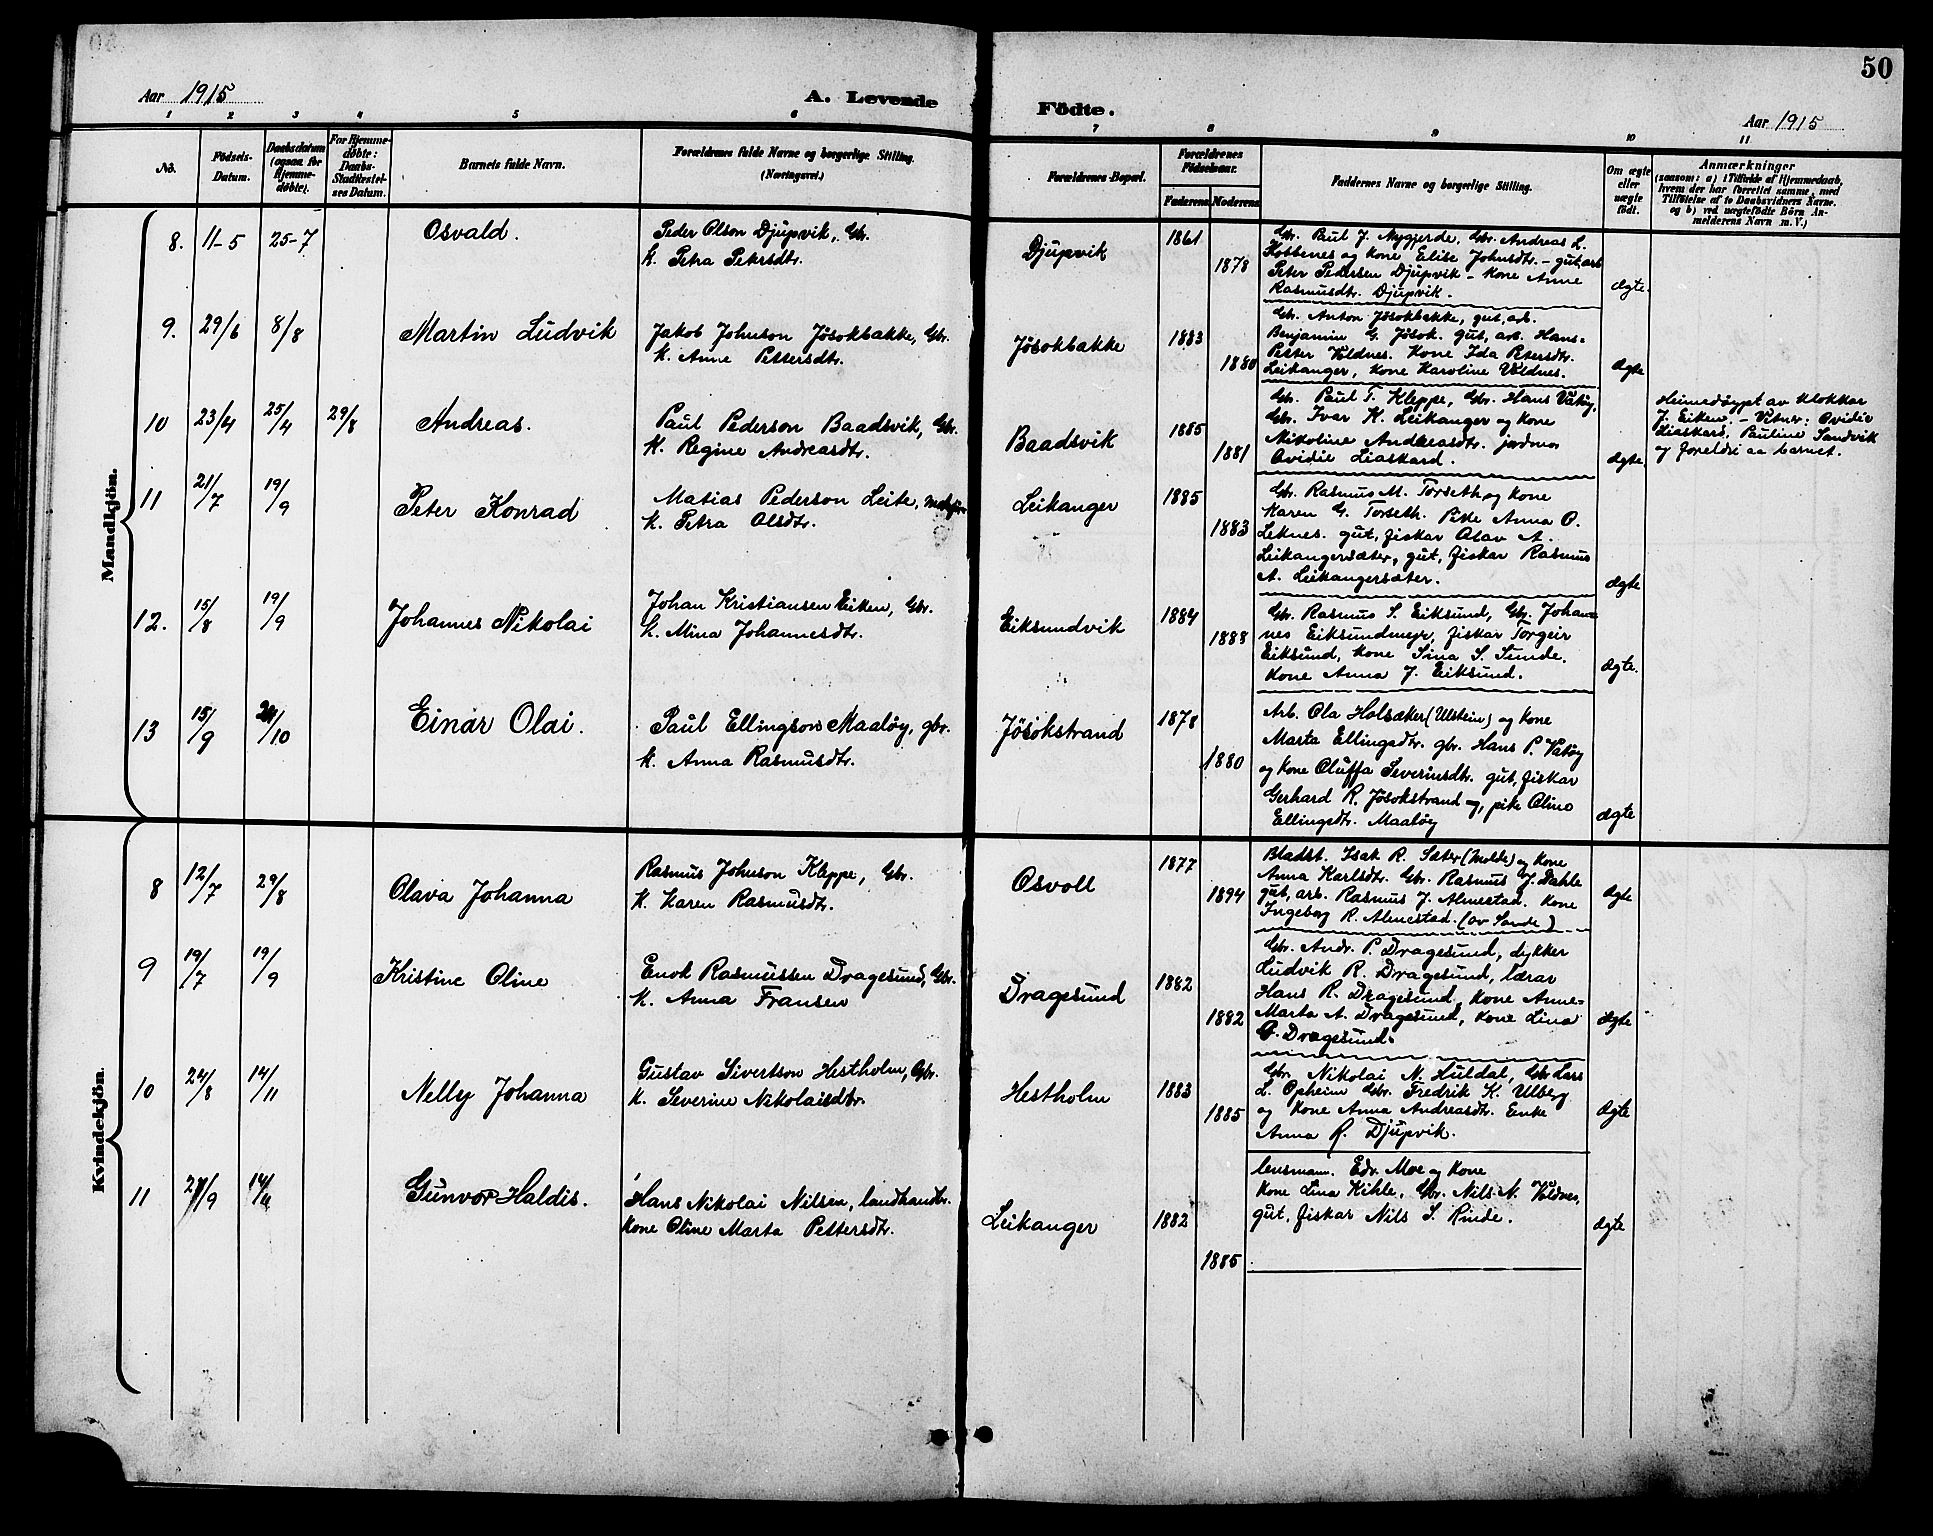 50
Aar 1915
A. Levende Födte.
Aar 1915
1 2 3 4 5 6 7 8 9 10 11
No.
Födsels-Datum.
Daabsdatum (ogsaa for Hjemmedöbte).
For Hjemmedöbte: Daabs-Stadfæstelses Datum.
Barnets fulde Navn.
Forældrenes fulde Navne og borgerlige Stilling.
(Næringsvei.)
Forældrenes Bopæl.
Forældrenes Födselsaar.
Faderens. Moderens.
Faddernes Navne og borgerlige Stilling.
Om ægte eller uægte födt.
Anmærkninger
(saasom: a) i Tilfælde af Hjemmedaab,
hvem der har forrettet samme, med
Tilföielse af to Daabsvidners Navne.
og b) ved uægtefödte Börn An-
melderens Navn m. V.)
Mandkjön.
8. 11-5 25-7 Osvald.
Peder Olson Djupvik, Gbr.
K. Petra Petersdtr.
Djupvik 1861 1878
Gbr. Paul J. Nygjerde, Gbr. Andreas L.
Kobbenes og Kone Elise Johnsdtr. – gut, arb
Peter Pedersen Djupvik – Kone Anne
Rasmusdtr. Djupvik.
ægte.
9. 29/6 8/8 Martin Ludvik
Jakob Johnson Jösokbakke, Gbr.
K. Anne Pettersdtr.
Jösokbakke 1883 1880
Gbr. Anton Jösokbakke, gut, arb.
Benjamin G. Jösok. gut, arb. Hans=
Petter Voldnes. Kone Ida Petersdtr.
Leikanger, Kone Karoline Voldnes.
ægte
10 23/4 25/4 29/8 Andreas.
Paul Pederson Baadsvik, Gbr.
K. Regine Andreasdtr.
Baadsvik 1885 1881
Gbr. Paul T. Kleppe, Gbr. Hans Vatöy,
Gbr. Ivar K. Leikanger og Kone
Nikoline Andreasdtr. jordmor
Ovidie Liaskard.
ægte
Heimedöypt av klokkar
J. Eiken. – Vitner: Ovidie
Liaskard, Pauline Sandvik
og foreldri aa barnet.
11 21/7 19/9 Peter Konrad
Matias Pederson Leite,
K. Petra Olsdtr.
Leikanger 1885 1883
Gbr. Rasmus M. Torseth og Kone
Karen G. Torseth. Pike Anna O.
Leknes. gut, fiskar Olav A.
Leikangersæter, gut, fiskar Rasmus
A. Leikangersæter.
ægte
12. 15/8 19/9 Johannes Nikolai
Johan Kristiansen Eiken, Gbr.
K. Mina Johannesdtr.
Eiksundvik 1884 1888
Gbr. Rasmus S. Eiksund, Gbr. Johan-
nes Eiksundmyr, fiskar Torgeir
Eiksund, Kone Sina S. Sunde.
Kone Anna J. Eiksund.
ægte.
13 15/9 24/10 Einar Olai.
Paul Ellingson Maalöy, gbr.
K. Anna Rasmusdtr.
Jösokstrand 1878 1880
Arb. Ola Holsæker (Ulstein) og Kone
Marta Ellingsdtr. gbr. Hans P. Vatöy
og Kone Oluffa Severinsdtr. gut, fiskar
Gerhard R. Jösokstrand og, pike Oline
Ellingsdtr. Maalöy
ægte
Kvindekjön.
8 12/7 29/8 Olava Johanna
Rasmus Johnson Kleppe, Gbr.
K. Karen Rasmusdtr.
Osvoll 1877 1894
Bladst. Isak R. Sæter (Molde) og Kone
Anna Karlsdtr. Gbr. Rasmus J. Dahle
gut, arb. Rasmus J. Almestad. Kone
Ingeborg R. Almestad. (av Sande)
ægte
9 19/7 19/9 Kristine Oline
Enok Rasmussen Dragesund, Gbr.
K. Anna Fransen
Dragesund 1882 1882
Gbr. Andr. P. Dragesund, dykker
Ludvik R. Dragesund, lærar
Hans R. Dragesund, Kone Anne=
Marta A. Dragesund, Kone Lina
G. Dragesund.
ægte
10 24/8 14/11 Nelly Johanna
Gustav Sivertson Hestholm, Gbr.
K. Severine Nikolaisdtr.
Hestholm 1883 1885
Gbr. Nikolai N. Huldal, Gbr. Lars
L. Opheim Gbr. Fredrik K. Ulberg
og Kone Anna Andreasdtr. Enke
Anna R. Djupvik.
ægte
11 27/9 14/11 Gunvor Haldis.
Hans Nikolai Nilsen, landhandlr.
Kone Oline Marta Pettersdtr.
Leikanger 1882 1885
lensmann. Edv. Moe og Kone
Kone Lina Kihle, Gbr. Nils N. Voldnes,
gut, fiskar Nils S. Rinde.
ægte